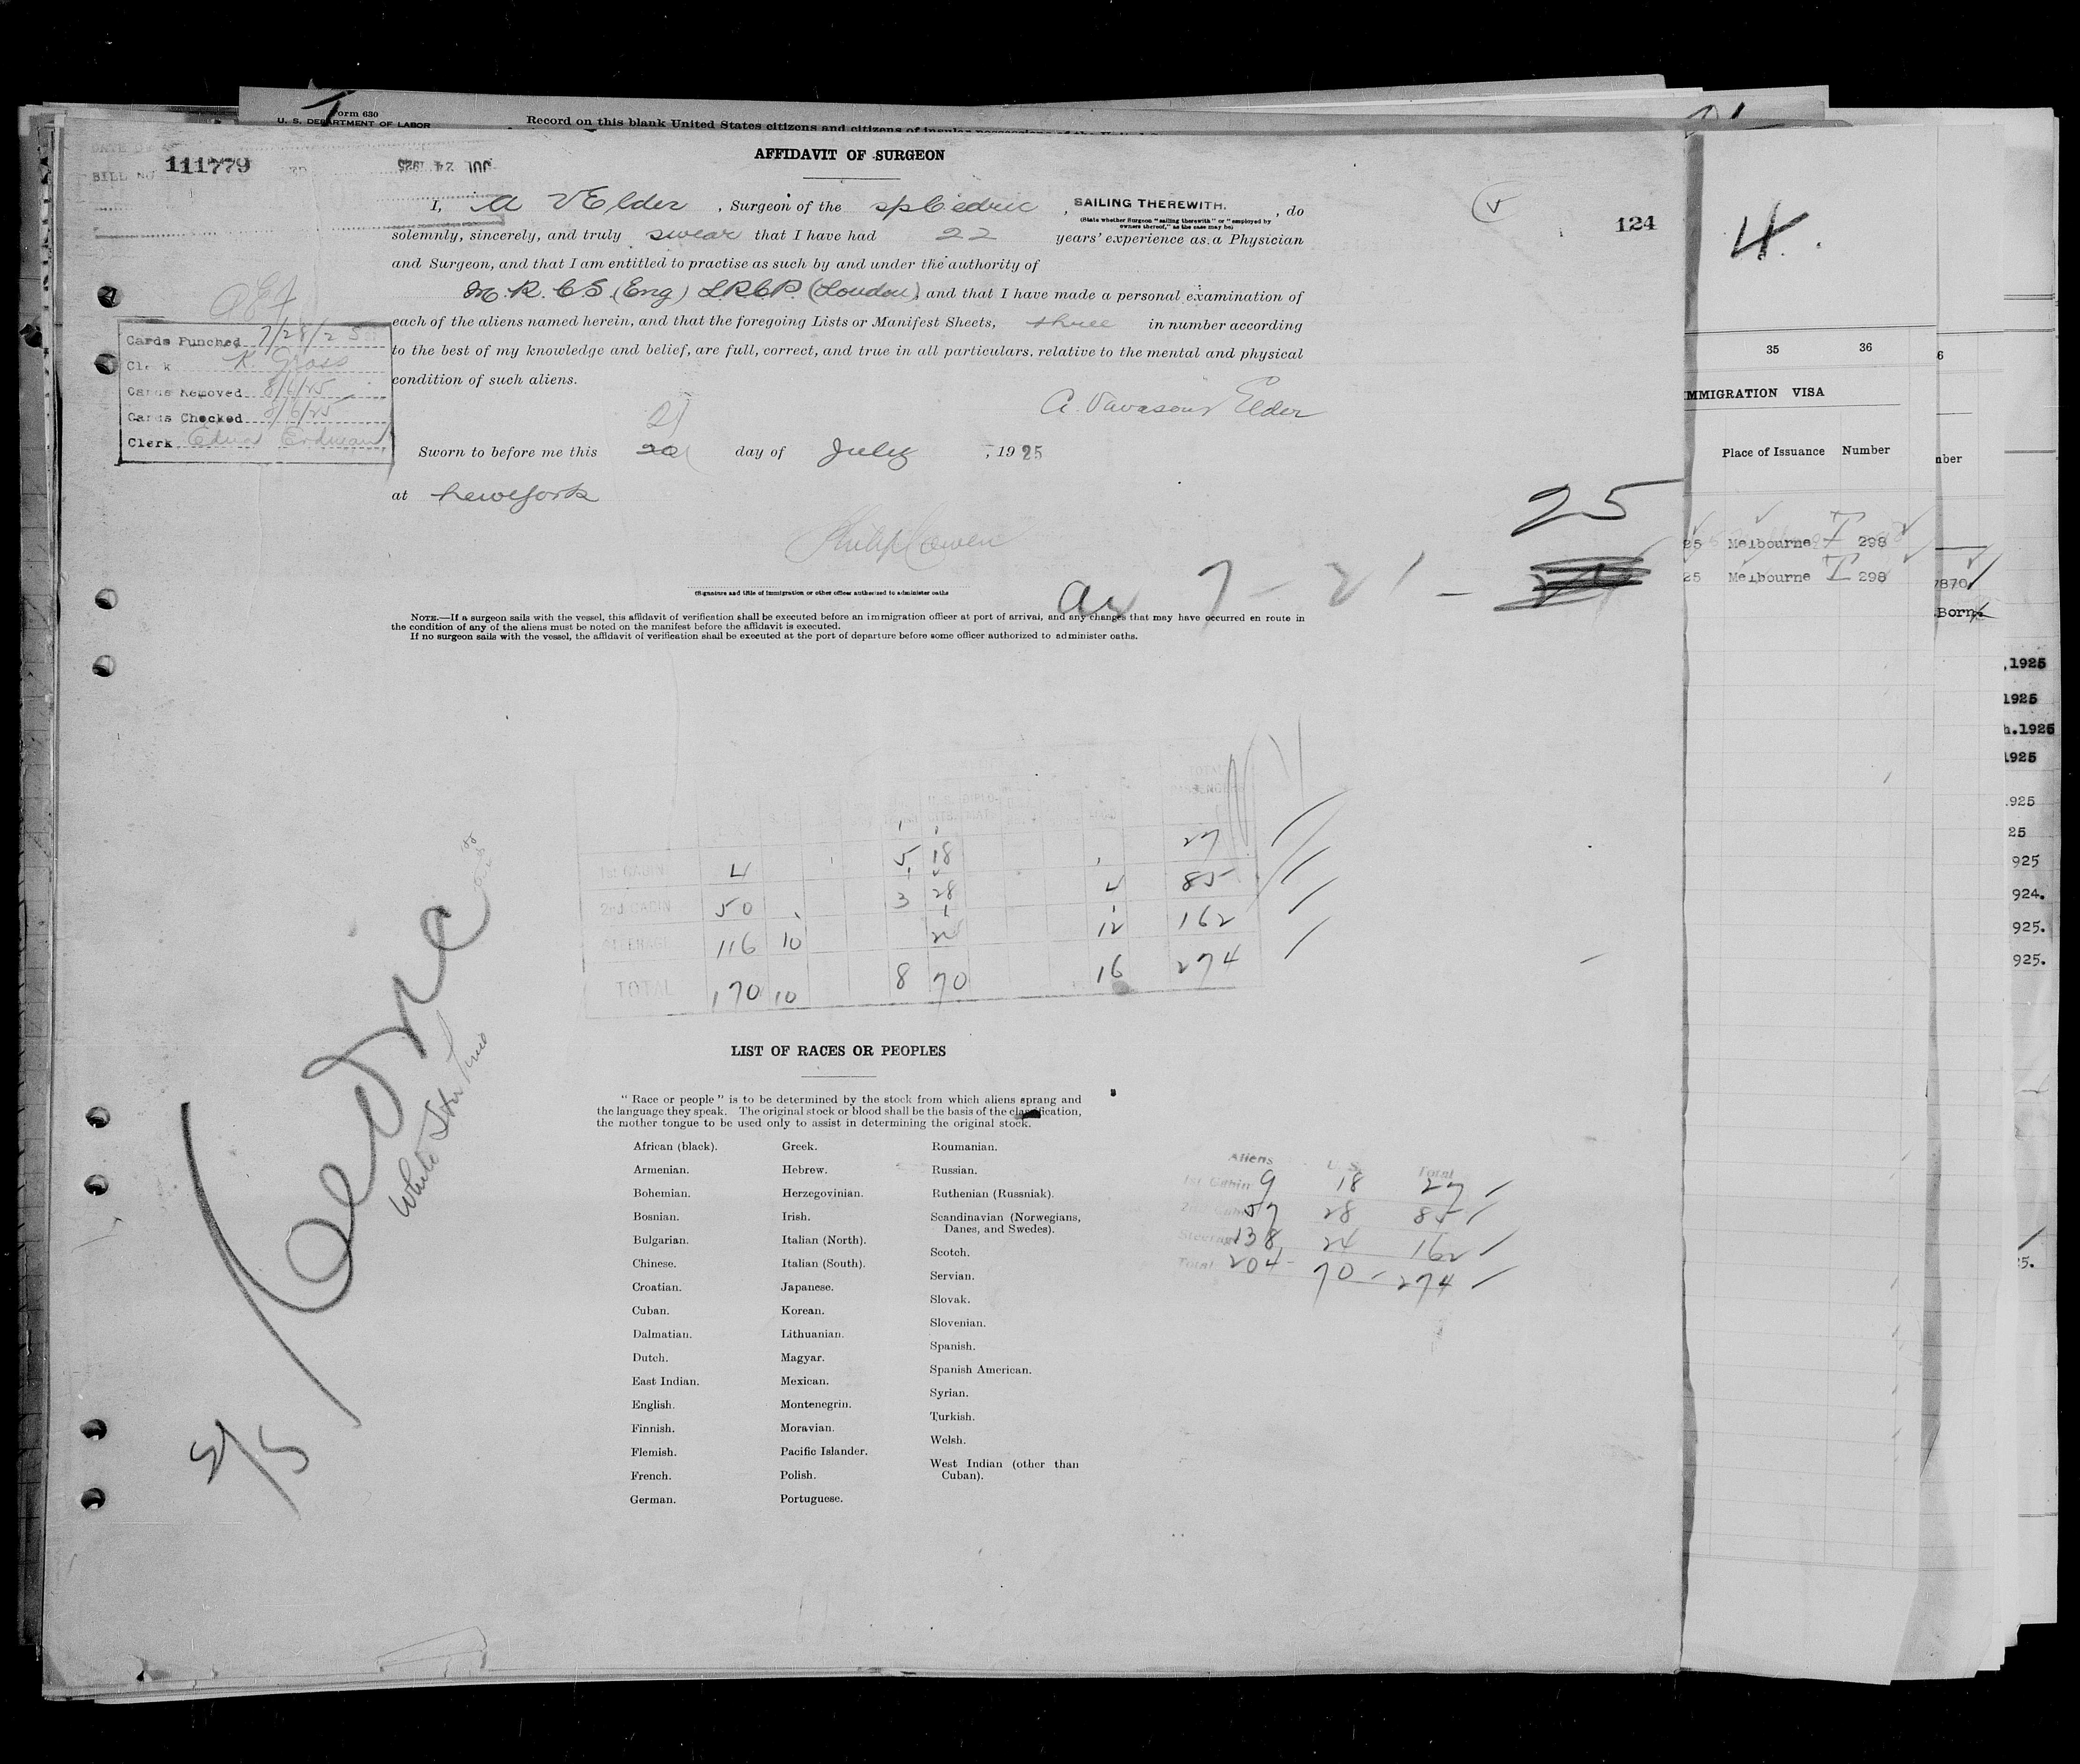 Form 630
U. S. DEPARTMENT OF LABOR
Record on this blank United States citizens and citizens of insular possessions of the
BILL NO
111779
JUL 24 1925
AFFIDAVIT OF SURGEON
I, A V Elder, Surgeon of the sp Cedric, SAILING THEREWITH., do
(State whether Surgeon "sailing therewith" or "employed by
owners thereof," as the case may be)
124
solemnly, sincerely, and truly swear that I have had 22 years' experience as a Physician
and Surgeon, and that I am entitled to practise as such by and under the authority of
M.R.CS.(Eng) LRCP.(London), and that I have made a personal examination of
each of the aliens named herein, and that the foregoing Lists or Manifest Sheets, three in number according
to the best of my knowledge and belief, are full, correct, and true in all particulars, relative to the mental and physical
condition of such aliens.
Cards Punched 7/28/25
Clerk K. Gross
Cards Removed 8/6/25
Cards Checked 8/6/25
Clerk Edna Erdman
A. Vavasour Elder
21
Sworn to before me this 20 day of July, 1925
at New York
Philip Cowen
(Signature and title of immigration or other officer authorized to administer oaths
25
Ar 7-21-
NOTE.—If a surgeon sails with the vessel, this affidavit of verification shall be executed before an immigration officer at port of arrival, and any changes that may have occurred en route in
the condition of any of the aliens must be noted on the manifest before the affidavit is executed.
If no surgeon sails with the vessel, the affidavit of verification shall be executed at the port of departure before some officer authorized to administer oaths.
TOTAL PASSENGERS
1st CABIN 4 5 18 27
2nd CABIN 50 3 28 4 85
STEERAGE 116 10 24 12 162
TOTAL 170 10 8 70 16 274
Cedric
White Star Line
S/S
LIST OF RACES OR PEOPLES
"Race or people" is to be determined by the stock from which aliens sprang and
the language they speak. The original stock or blood shall be the basis of the classification,
the mother tongue to be used only to assist in determining the original stock.
African (black).
Armenian.
Bohemian.
Bosnian.
Bulgarian.
Chinese.
Croatian.
Cuban.
Dalmatian.
Dutch.
East Indian.
English.
Finnish.
Flemish.
French.
German.
Greek.
Hebrew.
Herzegovinian.
Irish.
Italian (North).
Italian (South).
Japanese.
Korean.
Lithuanian.
Magyar.
Mexican.
Montenegrin.
Moravian.
Pacific Islander.
Polish.
Portuguese.
Roumanian.
Russian.
Ruthenian (Russniak).
Scandinavian (Norwegians,
Danes, and Swedes).
Scotch.
Servian.
Slovak.
Slovenian.
Spanish.
Spanish American.
Syrian.
Turkish.
Welsh.
West Indian (other than
Cuban).
Aliens U. S. Total
1st Cabin 9 18 27
2nd Cabin 57 28 85
Steerage 138 24 162
Total 204 - 70 - 274
4.
35 36
IMMIGRATION VISA
Place of Issuance Number
25 Melbourne 298
25 Melbourne 298
6
nber
7870
Born
,1925
1925
h.1925
1925
.925
25
925
924.
925.
925.
5.